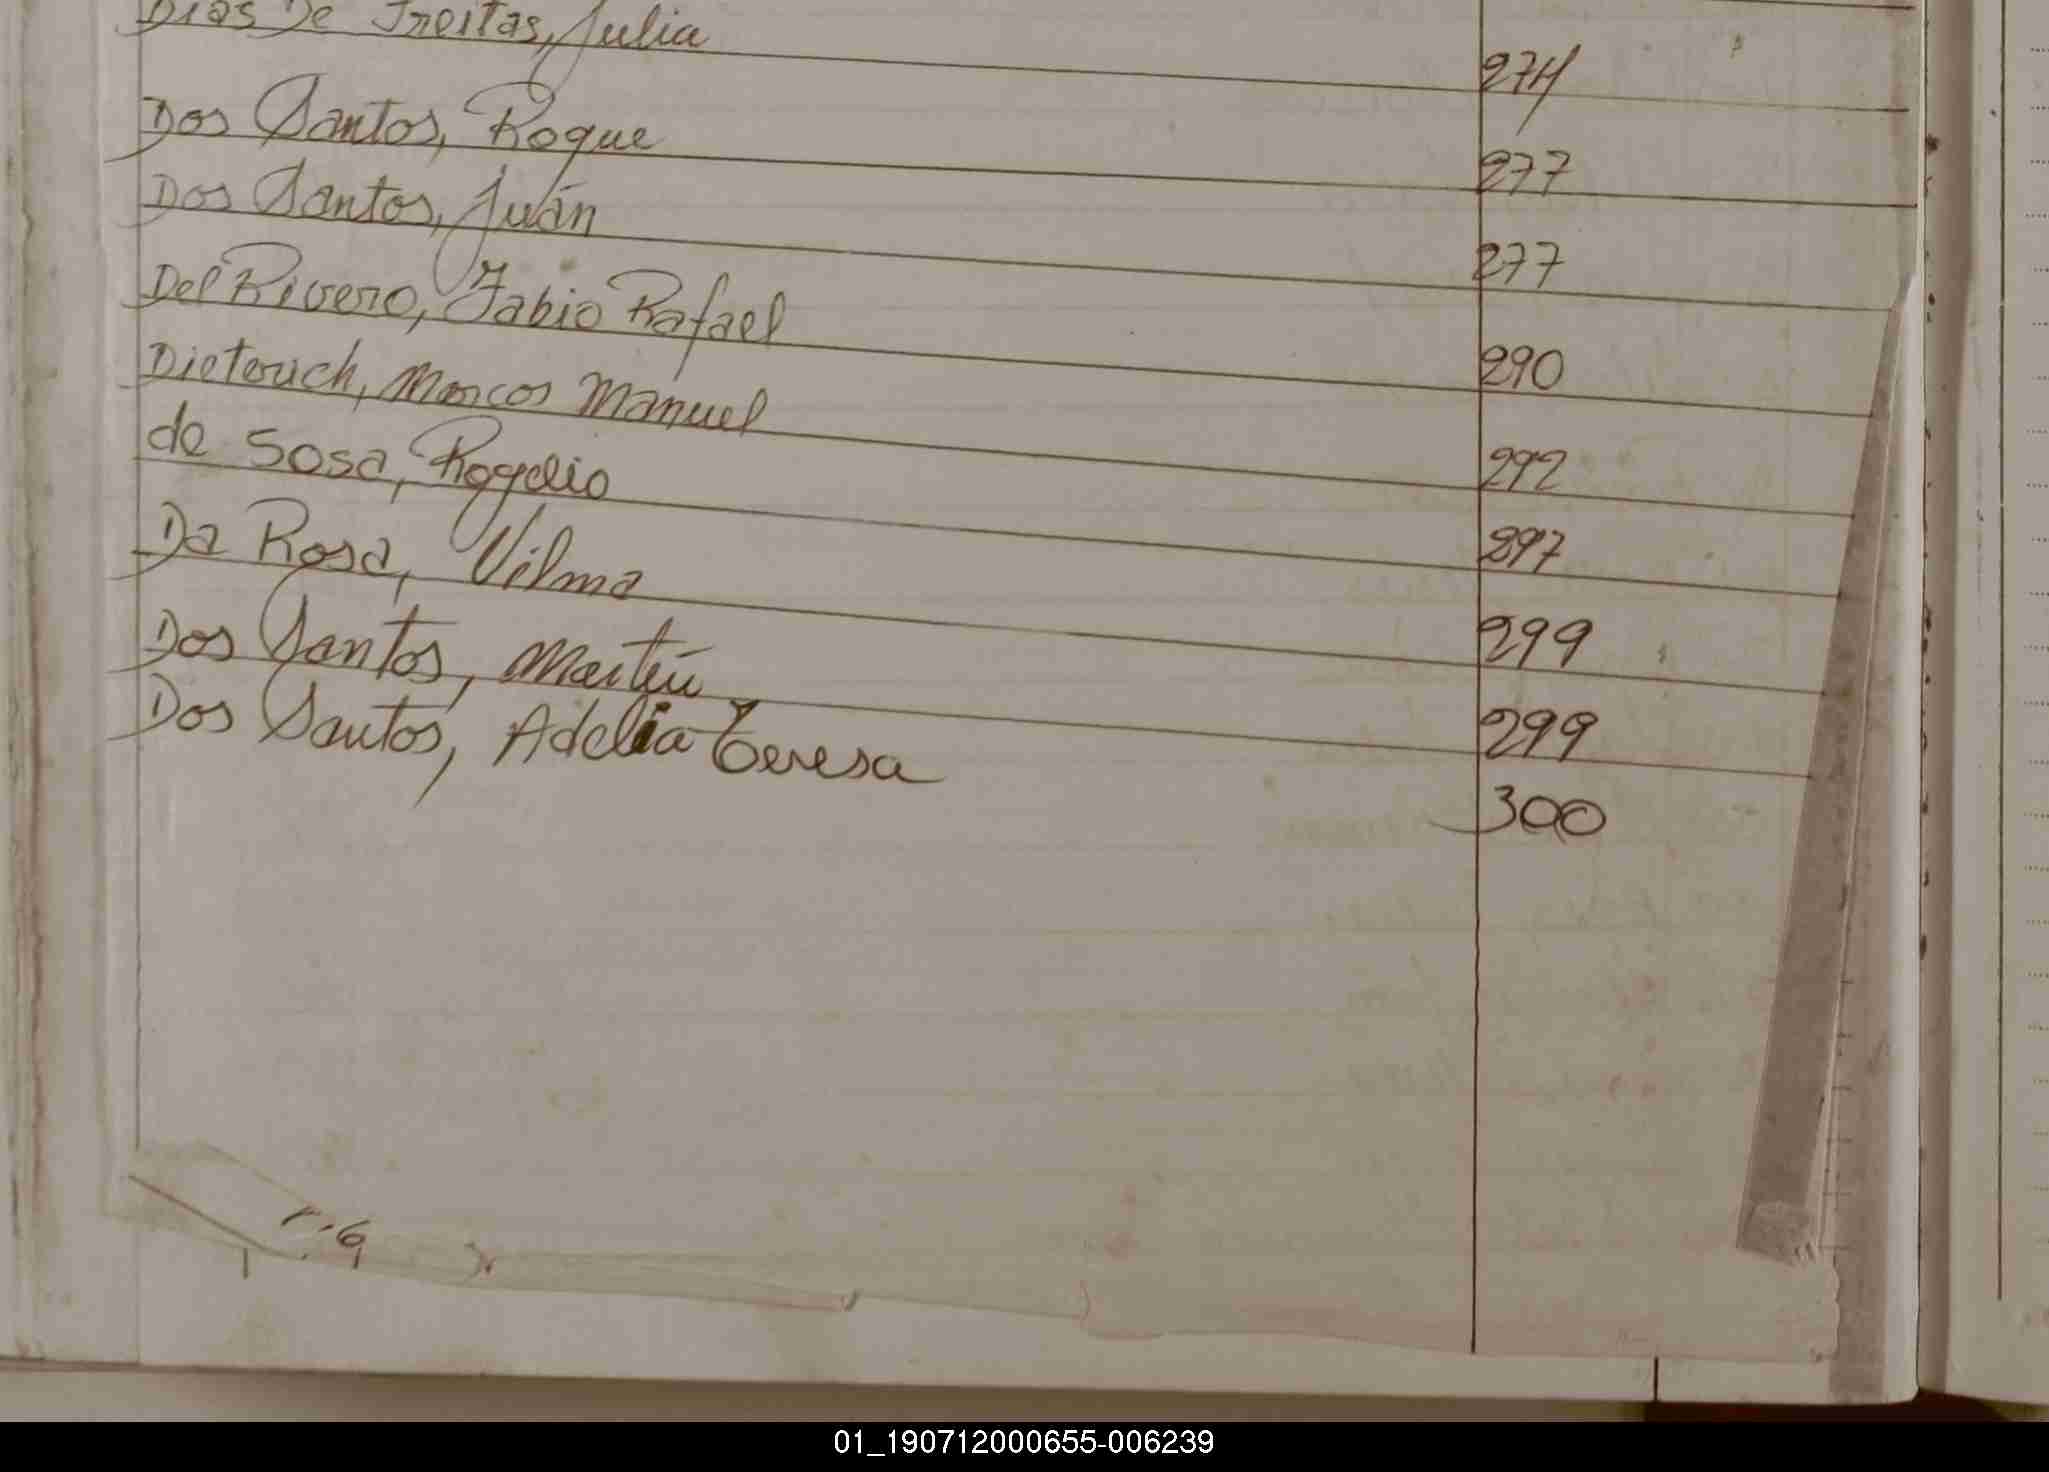 Dias De Freitas, Julia 274
Dos Santos, Roque 277
Dos Santos, Juán 277
Del Rivero, Fabio Rafael 290
Dieterich, Marcos Manuel 292
de Sosa, Rogelio 297
Da Rosa, Vilma 299
Dos Santos, Martín 299
Dos Santos, Adelia Teresa 300
01_190712000655-006239